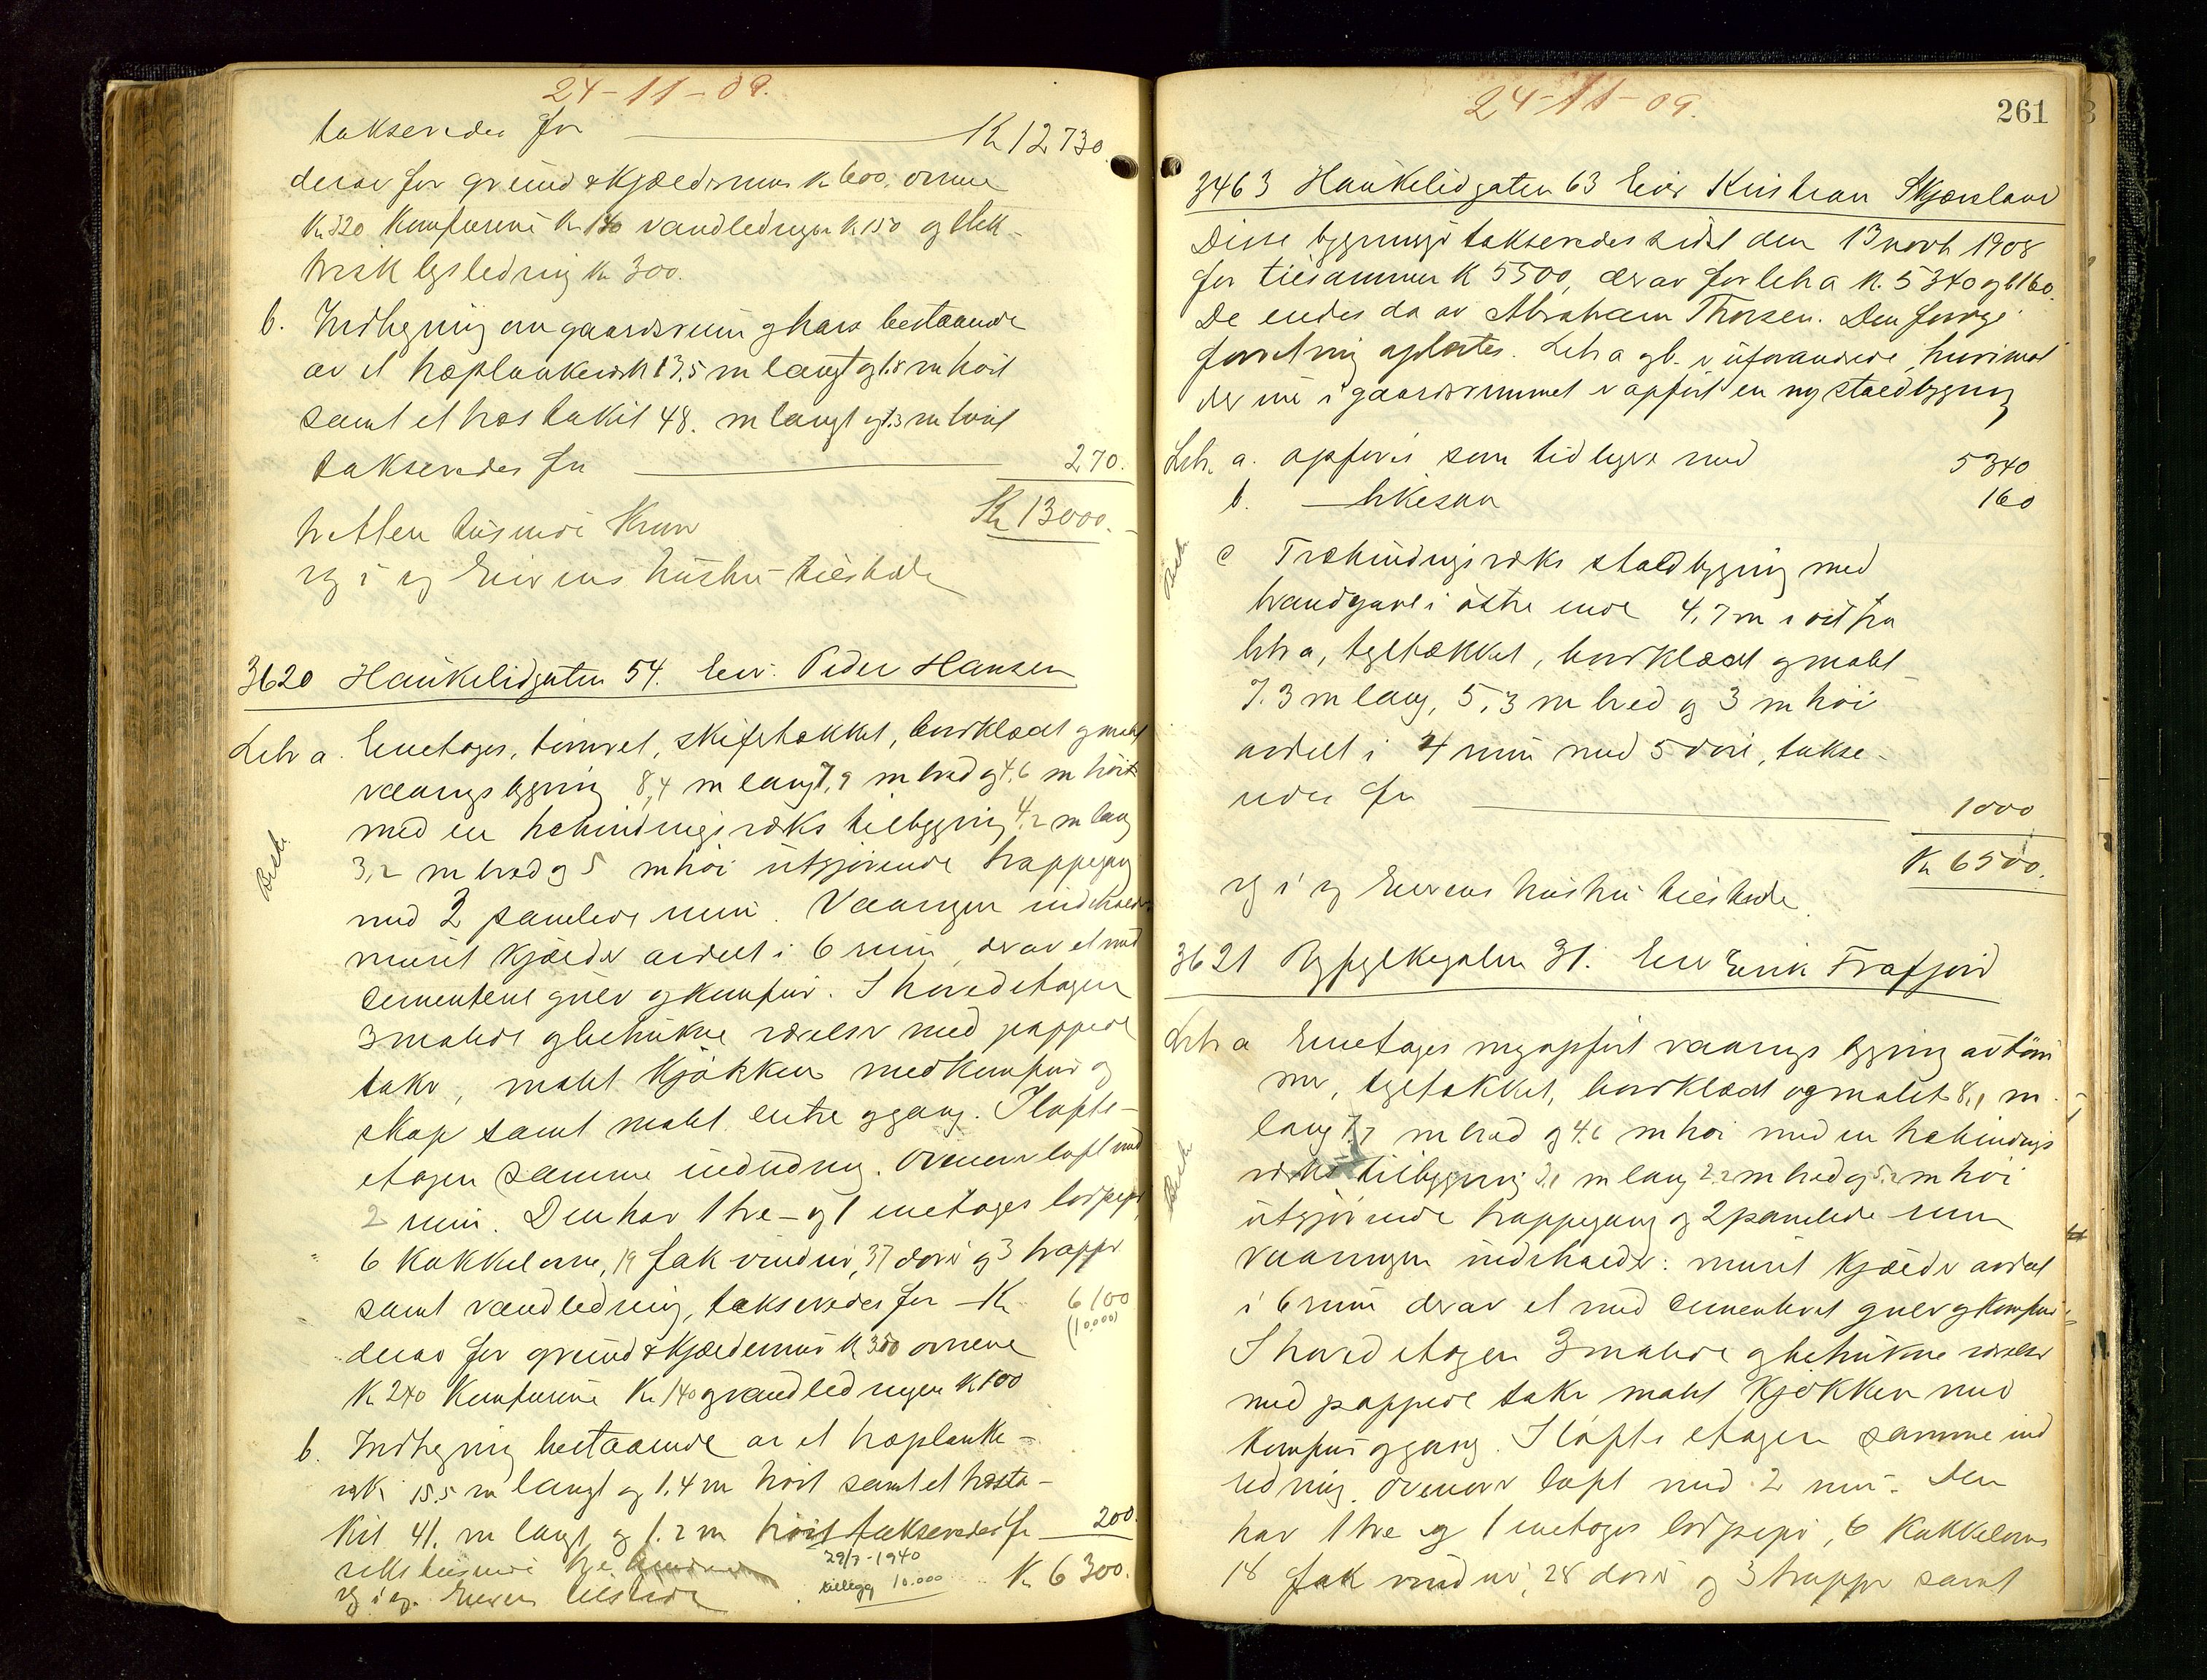 24-11-09.
takseredes for Kr 12730.
derav for grund & kjældermur kr 600. ovnene
Kr 320 Komfurene Kr 180 vandledningen kr 150 og elek-
trisk lysledning kr 300.
b. Indhegning om gaardsrum og have bestaaende
av et træplankeverk 13,5 m langt og 1.8 m høit
samt et træstakit 48. m langt og 1.3 m høit
takseredes for 270.
tretten tusinde Kroner Kr 13000.-
og Eierens hustru tilstede
3620 Haukelidgaten 54. Eier: Peder Hansen
Litr a. Enetages, tømret, skifertækket, bordklædt og malt
vaaningsbygning 8,4 m lang 7,9 m bred og 4,6 m høi
med en træbindingsverks tilbygning 4,2 m lang
3,2 m bred og 5 m høi utgjørende trappegang
med 2 panelede rum. Vaaningen indeholder
muret kjælder avdelt i 6 rum, derav et med
cementeret gulv og komfur. I hovedetagen
3 malede og betrukne værelser med pappede
take, malt kjøkken med komfur og
skap samt malt entre og gang. I lofts-
etagen samme indredning. Ovenover loft med
2 rum. Den har 1 tre- og 1 enetages lodpipe,
6 kakkelovne, 19 fak vinduer, 37 dører og 3 trapper
samt vandledning, takseredes for Kr 6100
(10.000)
derav for grund & kjældermur kr 350 ovnene
Kr 240 Komfurene Kr 140 og vandledningen kr 100
b. Indhegning bestaaende av et træplanke-
verk 15,5 m langt og 1,4 m høit samt et træsta-
kit 41. m langt og 1.2 m høit takseredes for 200.
seks tusinde tre hundrede Kr 6300.
29/7-1940
tillegg 10.000
og Eieren tilstede
Besk.
24-11-09.
261
3463 Haukelidgaten 63 Eier Kristian Skjæveland
Disse bygninger takseredes sidst den 13 novb 1908
for tilsammen K 5500, derav for litr a K. 5340 og b 160.
De eiedes da av Abraham Thorsen. Den forrige
forretning oplæstes. Litr a og b. er uforandrede, hvorimot
der nu i gaardsrummet er opført en ny staldbygning
Litr. a. opføres som tidligere med 5340
b. — likesaa 160
c Træbindingsverks staldbygning med
brandgavl i østre ende 4,7 m i vest fra
litr a, tegltækket, bordklædt og malt
7.3 m lang, 5,3 m bred og 3 m høi
avdelt i 4 rum med 5 dører, takse-
redes for 1000
Kr 6500.
og Eierens hustru tilstede.
Besk.
3621 Ryfylkegaten 31. Eier Erik Frafjord
Litr a Enetages nyopført vaaningsbygning av tøm
mer, tegltækket, bordklædt og malet 8,1 m
lang 7,7 m bred og 4,6 m høi med en træbindings
verks tilbygning 3,1 m lang 2.2 m bred og 5,2 m høi
utgjørende trappegang og 2 panelede rum
Vaaningen indeholder: muret kjælder avdelt
i 6 rum derav et med cementeret gulv og komfur
I hovedetagen 3 malede og betrukne værelser
med pappede take malt kjøkken med
komfur og gang. I lofts etagen samme ind
redning. Ovenover loft med 2 rum. Den
har 1 tre og 1 enetages lodpipe, 6 kakkelovne
18 fak vinduer, 28 dører og 3 trapper samt
Besk.